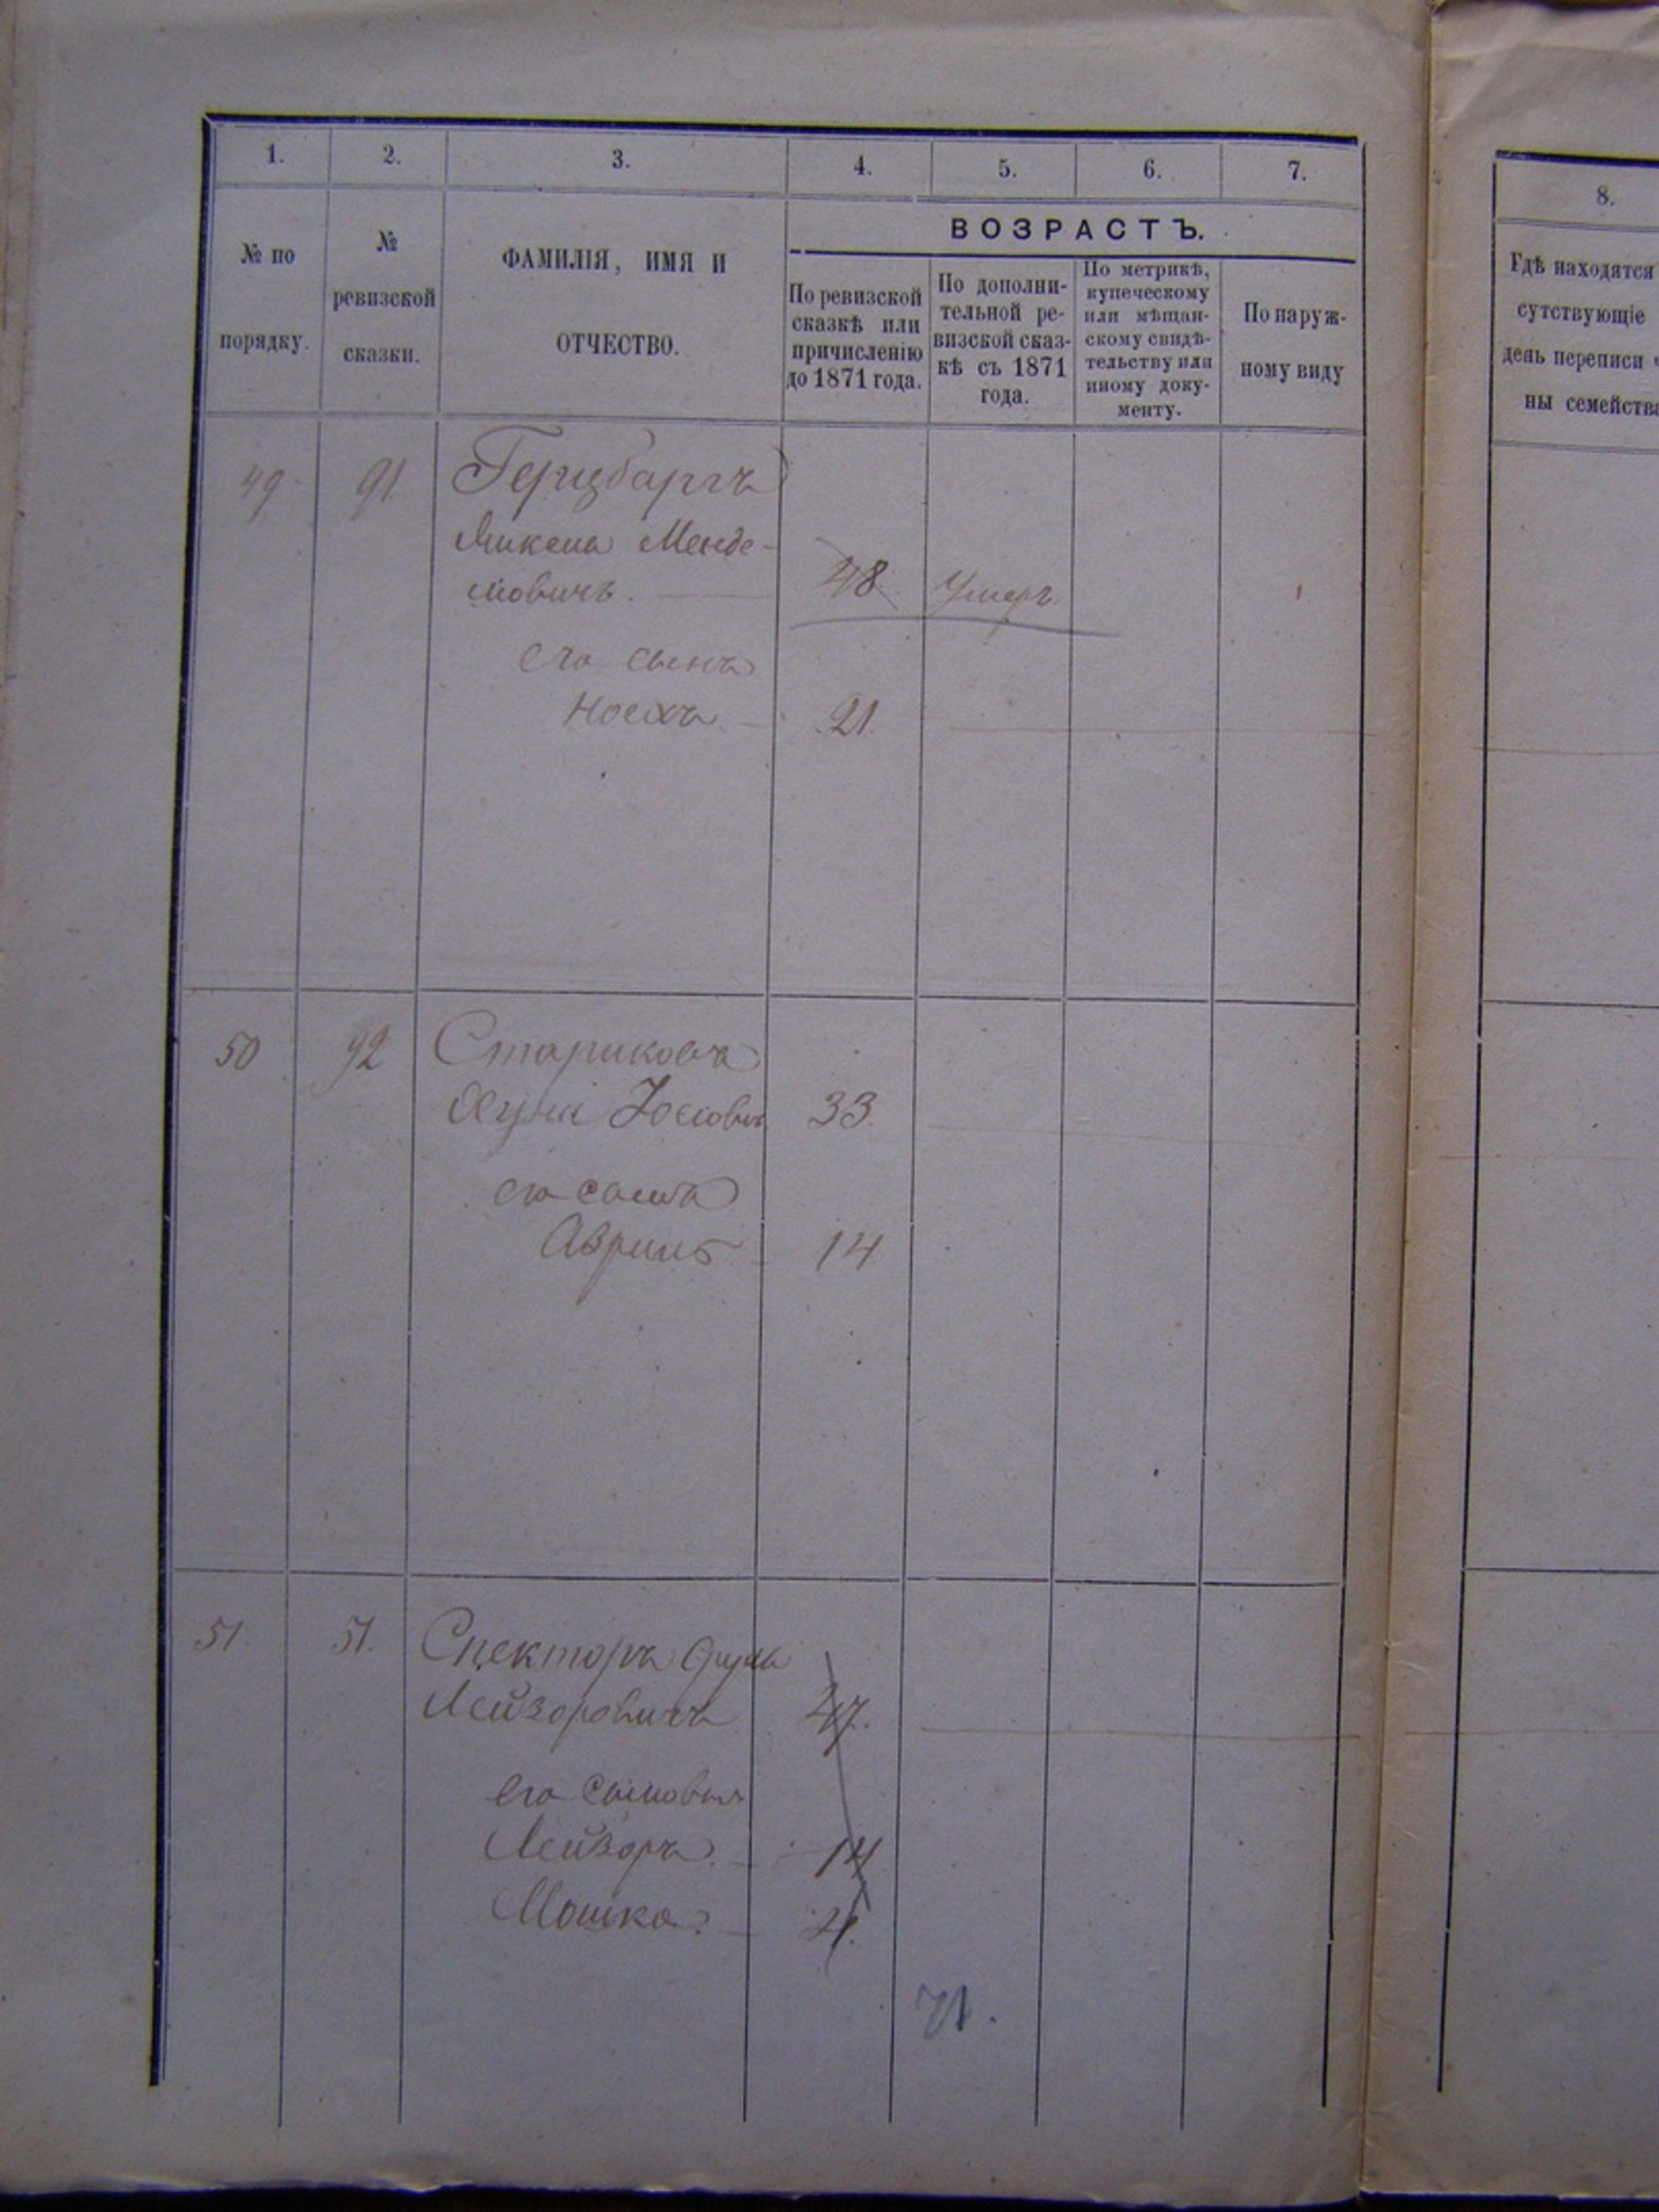 1. 2. 3. 4. 5. 6. 7.
№ по порядку.
№ ревизской сказки.
ФАМИЛІЯ, ИМЯ И
ОТЧЕСТВО.
ВОЗРАСТЪ.
По ревизской
сказкѣ или
причисленію
до 1871 года.
По дополни-
тельной ре-
визской сказ-
кѣ съ 1871
года.
По метрикѣ,
купеческому
или мѣщан-
скому свидѣ-
тельству или
иному доку-
менту.
По наруж-
ному виду
8.
Гдѣ находятся
сутствующіе
день переписи
ны семейства
49 91 Герцбаргъ
Менде-
левичъ. 48 Умеръ
его сынъ
Носахъ 21.
50 92 Стариковъ
33.
его сынъ
Аврумъ 14
51 51. Спекторъ
Лейзоровичъ 47.
его сыновья
Лейзоръ. 14
Мошко. 4.
71.